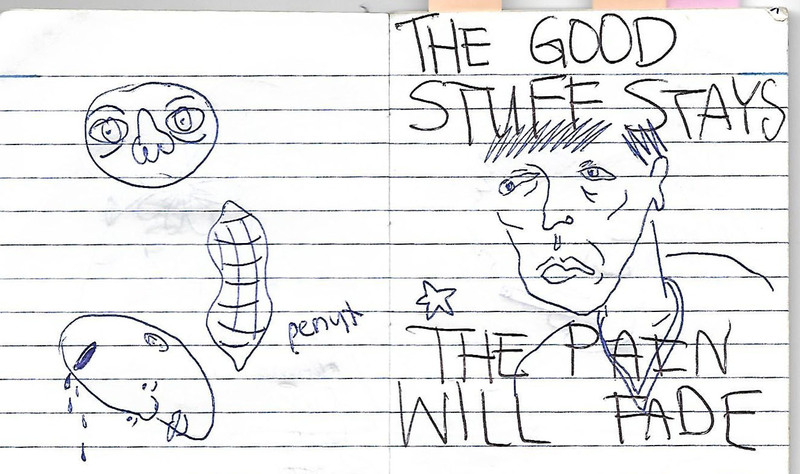 penut
THE GOOD
STUFF STAYS
THE PAIN
WILL FADE